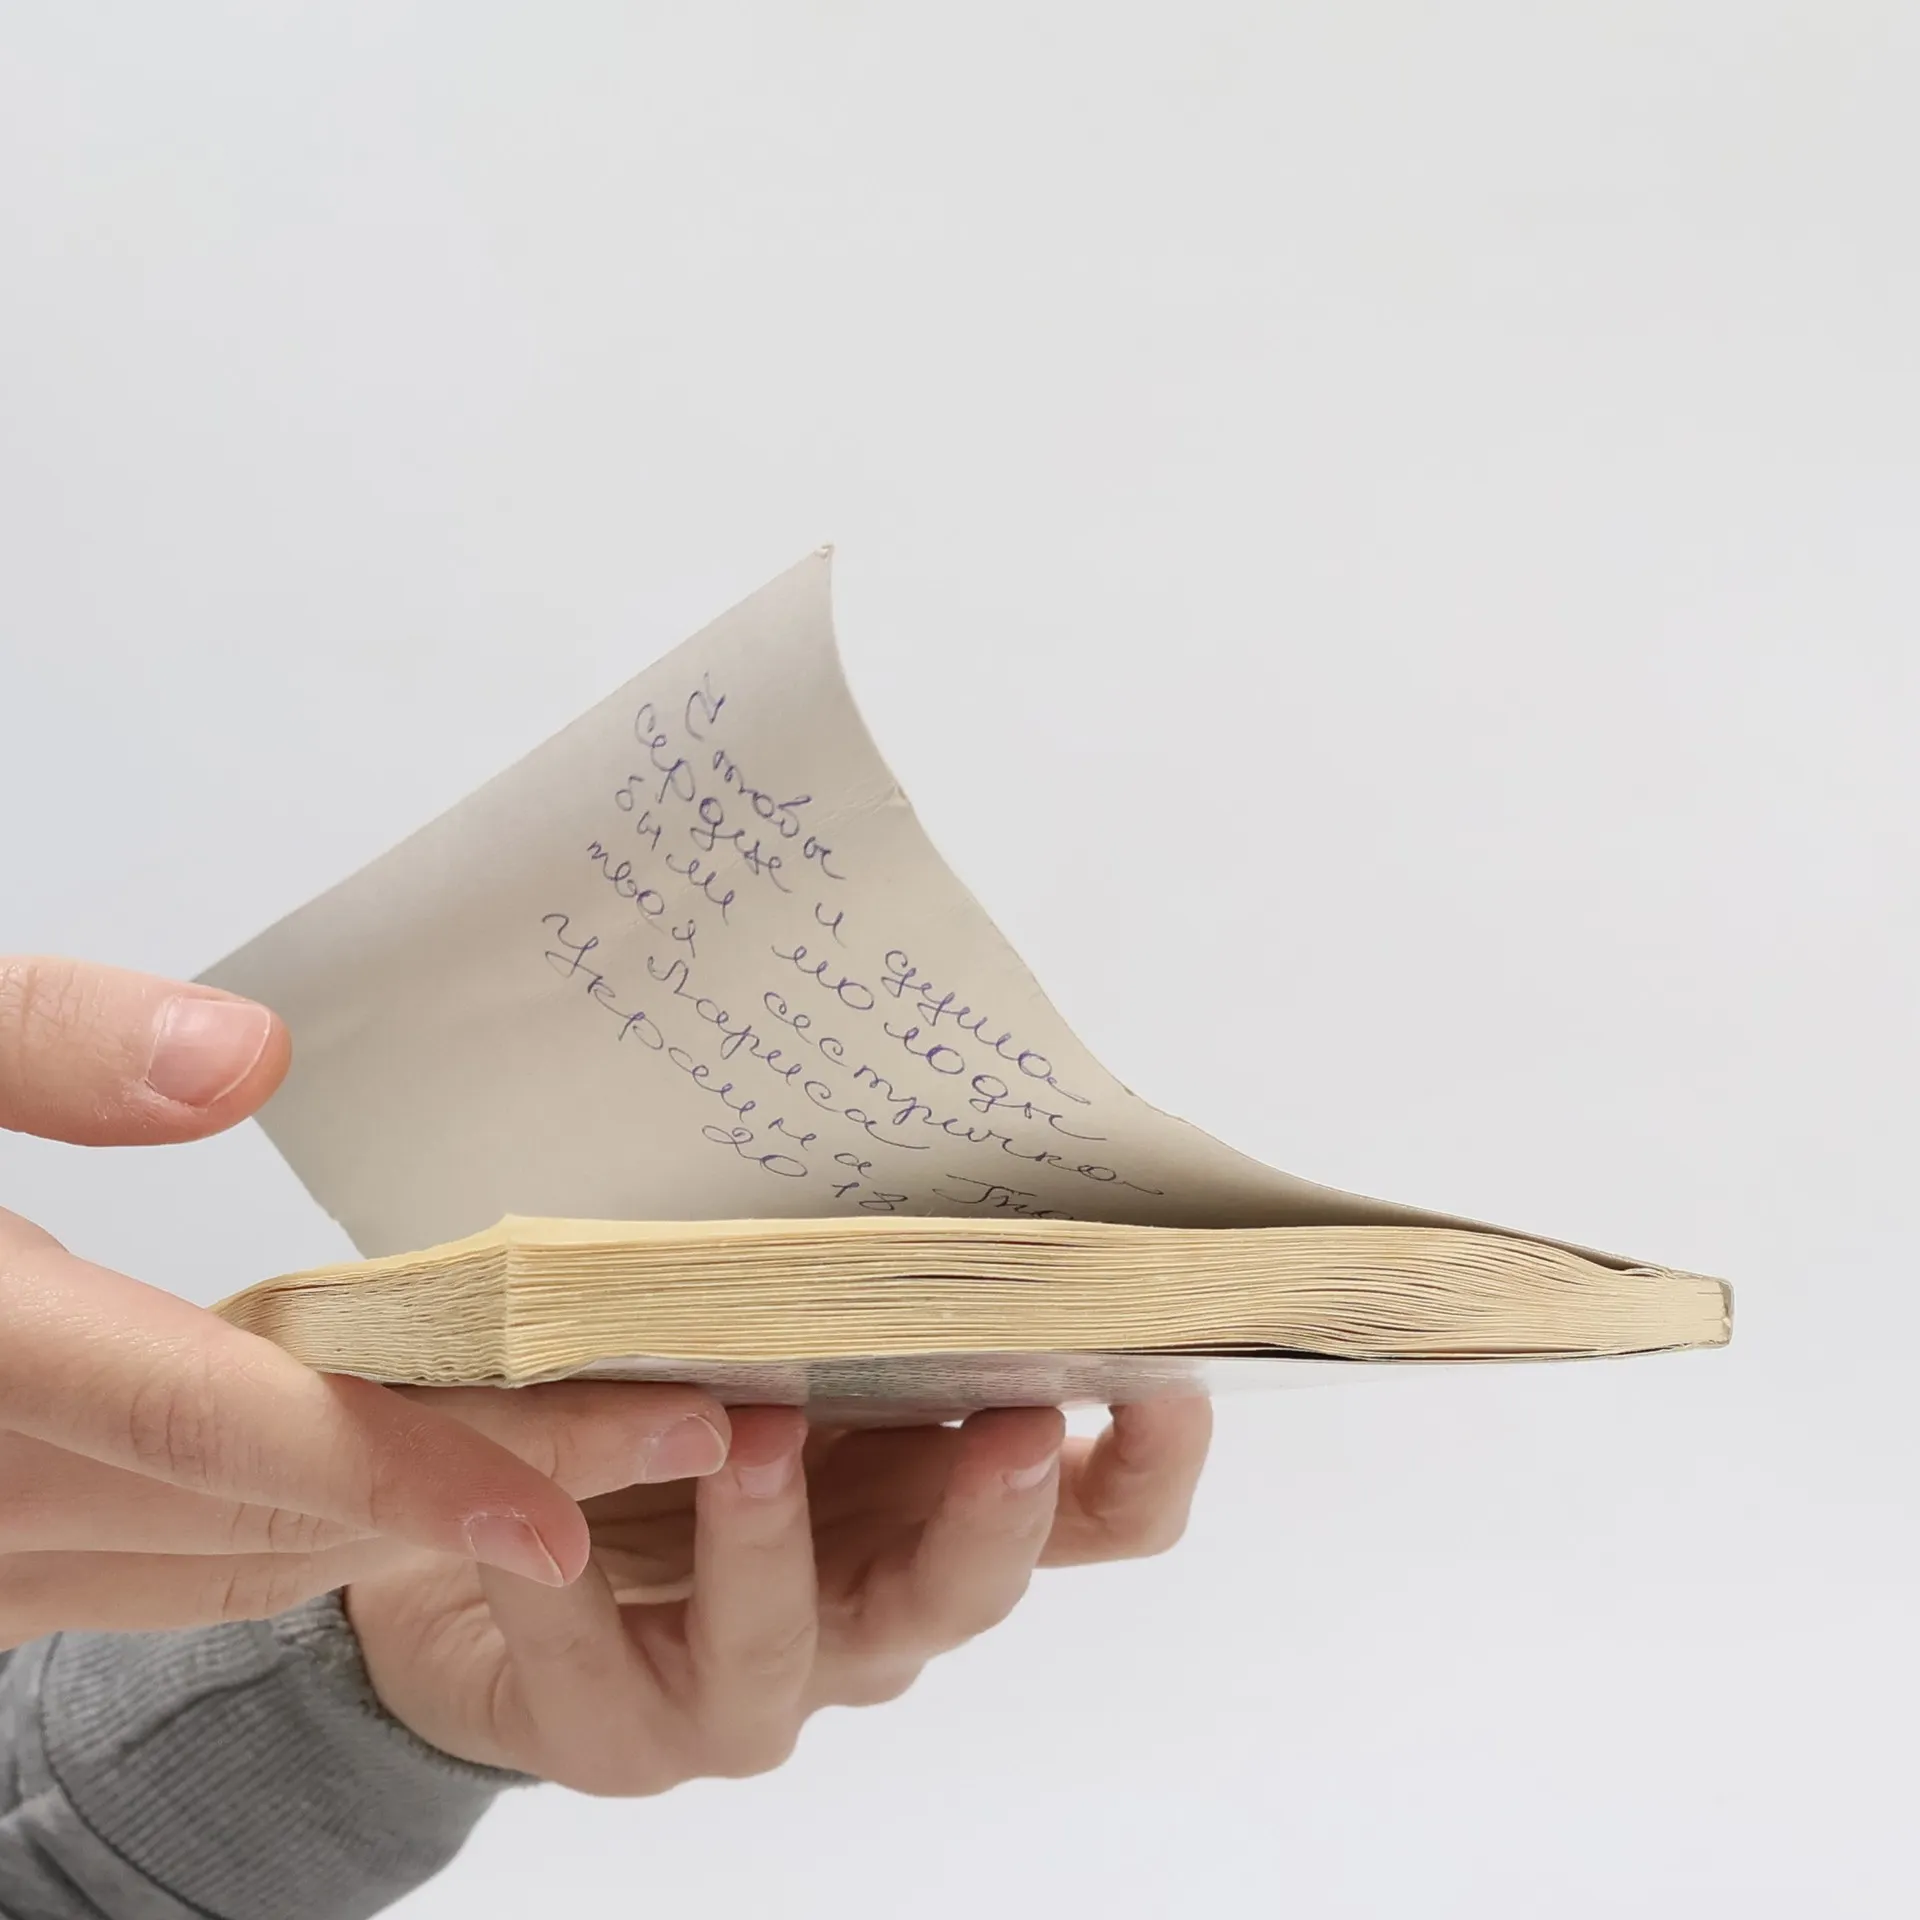 Чтобы
сердце и душа
были молоды
твоя сестричка
Лариса
Украина
2018